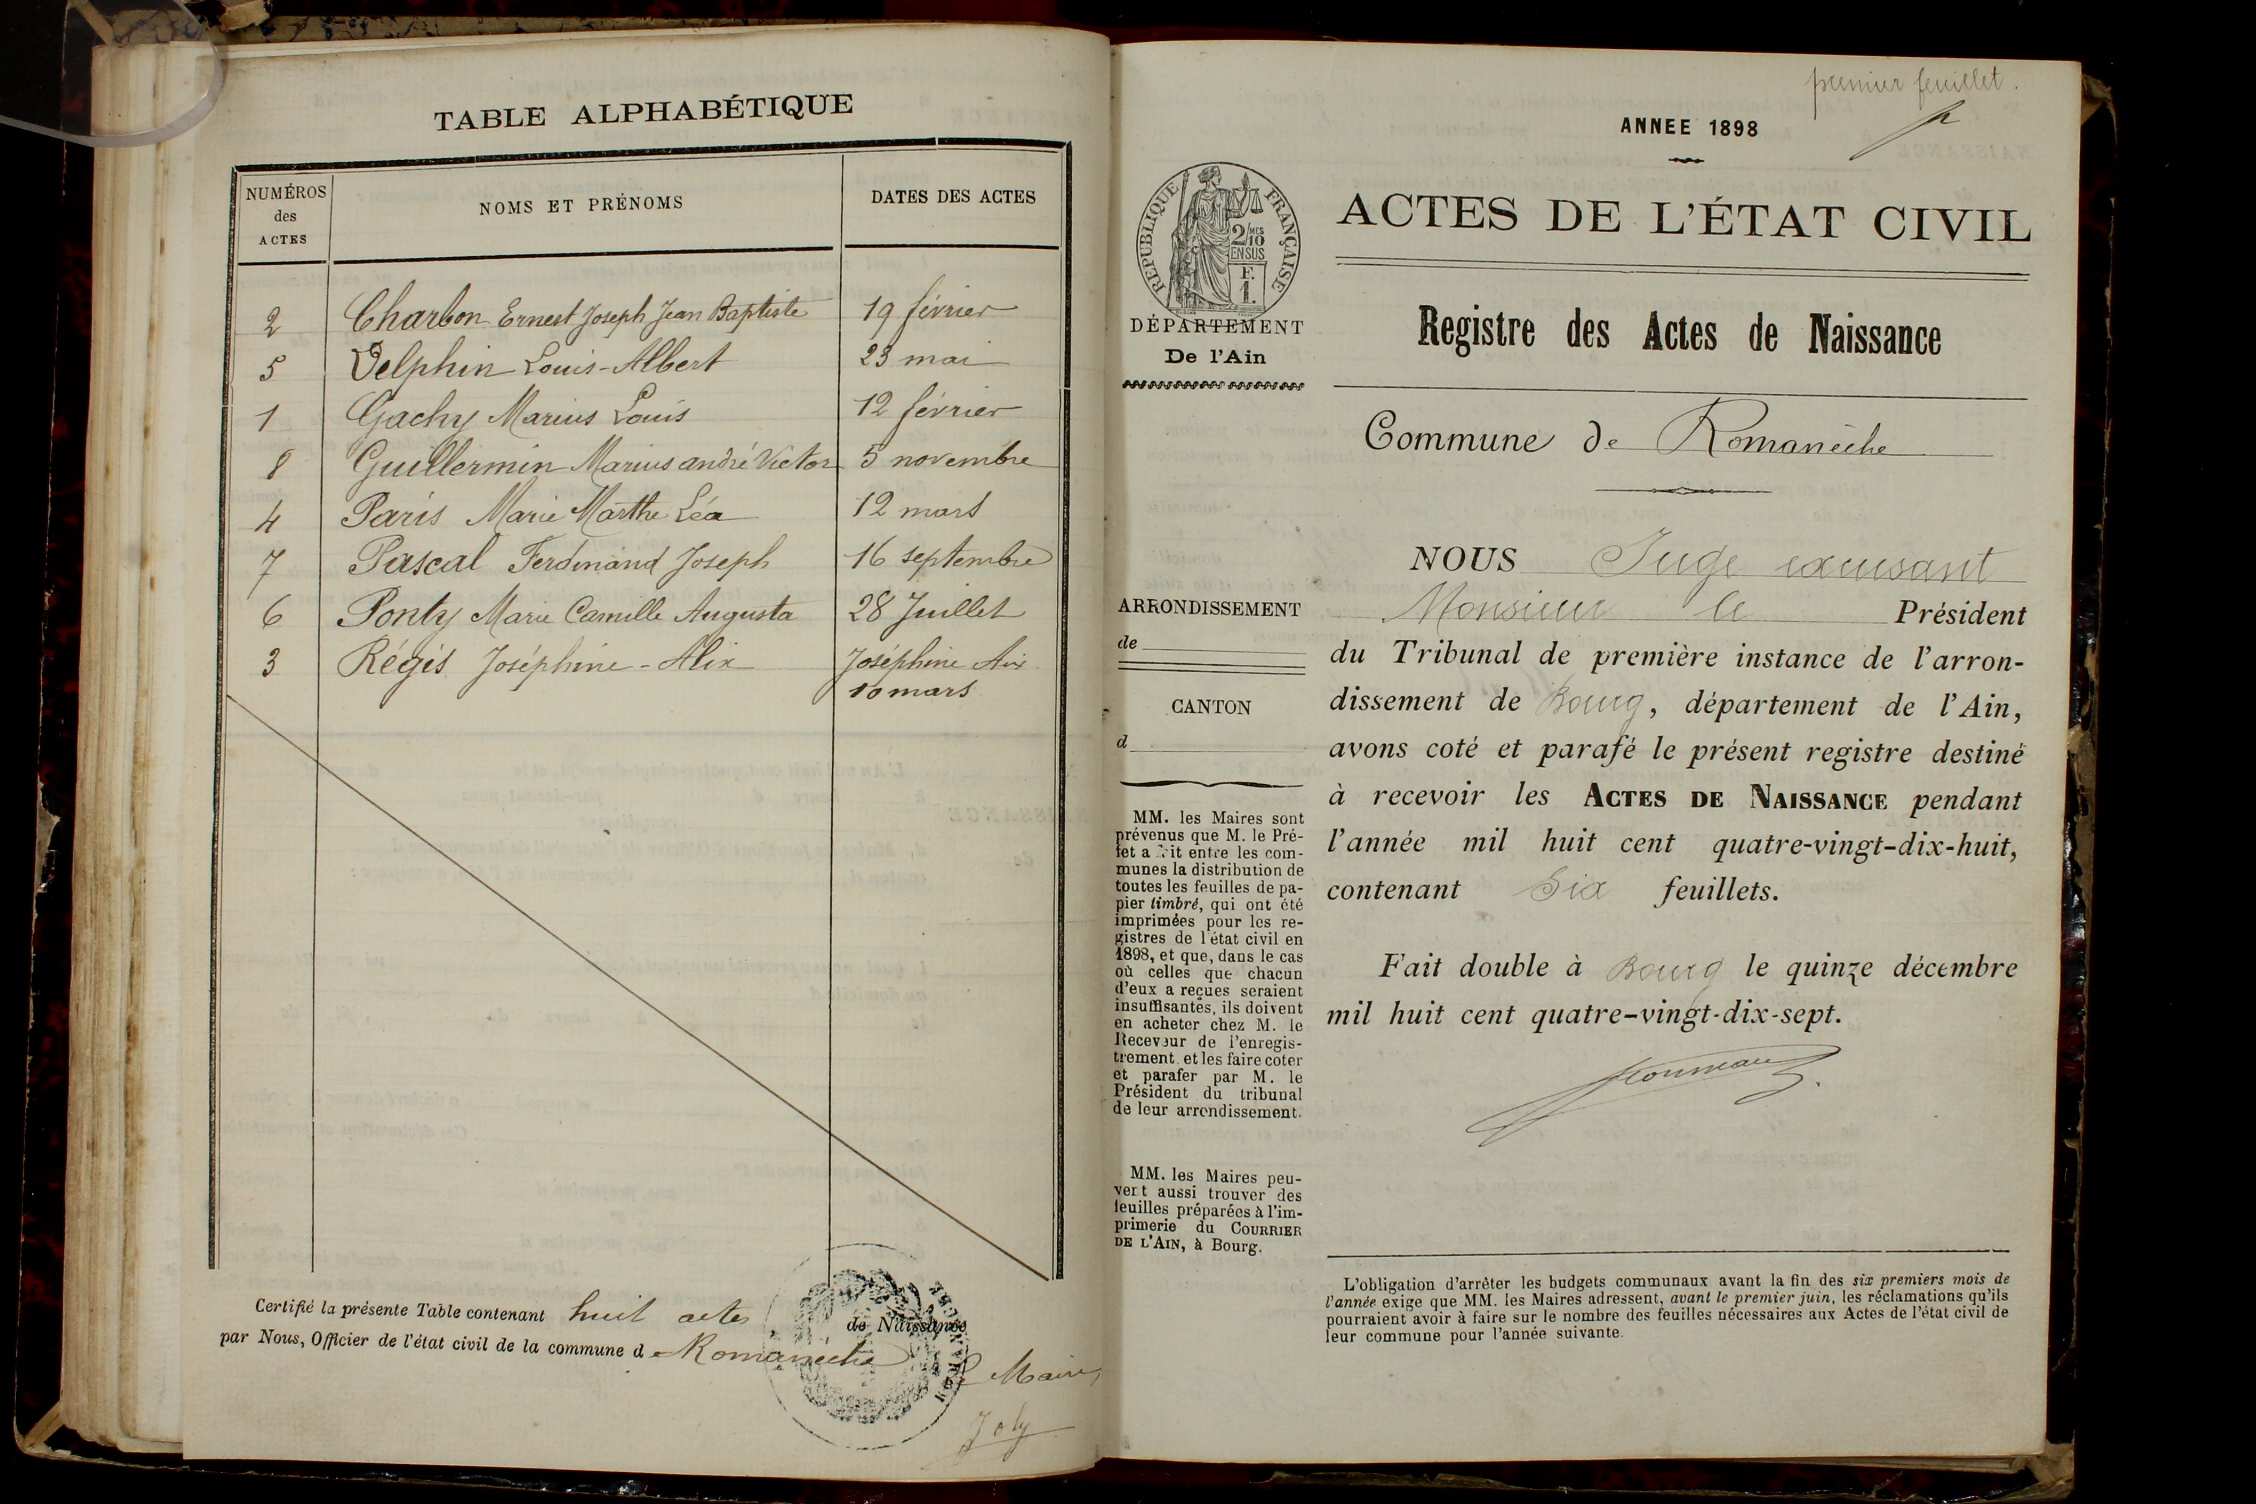 TABLE ALPHABÉTIQUE
NUMÉROS
des
ACTES
NOMS ET PRÉNOMS
DATES DES ACTES
2 Charbon Ernest Joseph Jean Baptiste 19 février
5 Delphin Louis-Albert 23 mai
1 Gachy Marius Louis 12 février
8 Guillermin Marius andré Victor 5 novembre
4 Paris Marie Marthe Léa 12 mars
7 Pascal Ferdinand Joseph 16 septembre
6 Ponty Marie Camille Augusta 28 Juillet
3 Régis Joséphine-Alix Joséphine Aix
10 mars
Certifié la présente Table contenant huit actes de Naissance
par Nous, Officier de l'état civil de la commune d e Romanèche
Le Maire,
Joly
premier feuillet.
ANNEE 1898
ACTES DE L'ÉTAT CIVIL
REPUBLIQUE FRANÇAISE
2/10 MES
EN SUS
F.
1.
DÉPARTEMENT
De l'Ain
Registre des Actes de Naissance
Commune de Romanèche
ARRONDISSEMENT
de
CANTON
d
MM. les Maires sont
prévenus que M. le Pré-
fet a fait entre les com-
munes la distribution de
toutes les feuilles de pa-
pier timbré, qui ont été
imprimées pour les re-
gistres de l'état civil en
1898, et que, dans le cas
où celles que chacun
d'eux a reçues seraient
insuffisantes, ils doivent
en acheter chez M. le
Receveur de l'enregis-
trement et les faire coter
et parafer par M. le
Président du tribunal
de leur arrondissement.
MM. les Maires peu-
vent aussi trouver des
feuilles préparées à l'im-
primerie du COURRIER
DE L'AIN, à Bourg.
NOUS Juge excusant
Monsieur le Président
du Tribunal de première instance de l'arron-
dissement de Bourg, département de l'Ain,
avons coté et parafé le présent registre destiné
à recevoir les ACTES DE NAISSANCE pendant
l'année mil huit cent quatre-vingt-dix-huit,
contenant Six feuillets.
Fait double à Bourg le quinze décembre
mil huit cent quatre-vingt-dix-sept.
L'obligation d'arrêter les budgets communaux avant la fin des six premiers mois de
l'année exige que MM. les Maires adressent, avant le premier juin, les réclamations qu'ils
pourraient avoir à faire sur le nombre des feuilles nécessaires aux Actes de l'état civil de
leur commune pour l'année suivante.